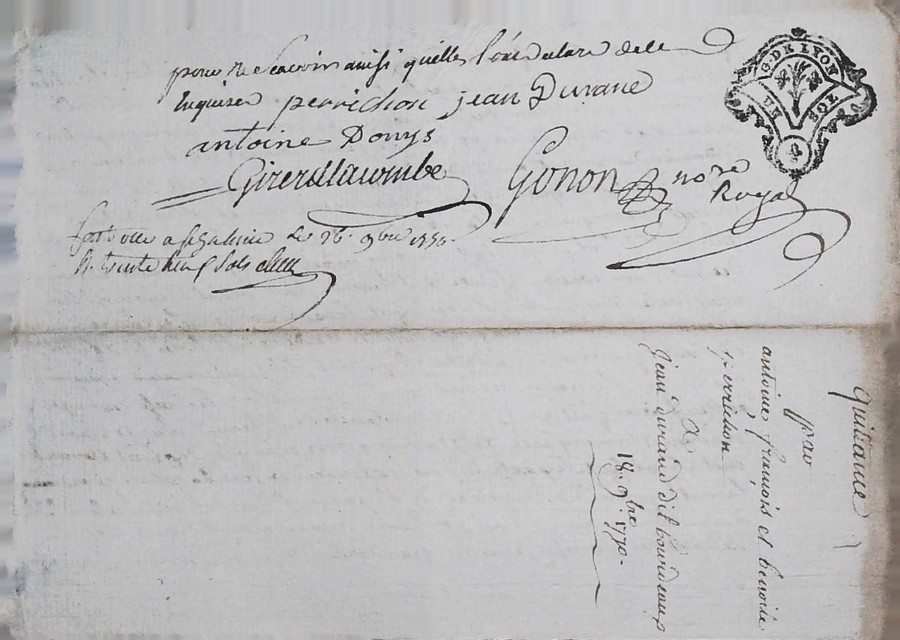 pour ne scavoir ainsi quelles l'ont declaré de ce
enquises perrichon jean Durané
antoine Donys
Girerdlacombe Gonon nore
Royal
G. DE LYON
UN SOL
a st galmier le 26. 9bre 1770.
R. trente neuf sols
Quittance
par
antoine, françois et benoite
perrichon
a
jean durand dit bourdeaux
18. 9bre. 1770.